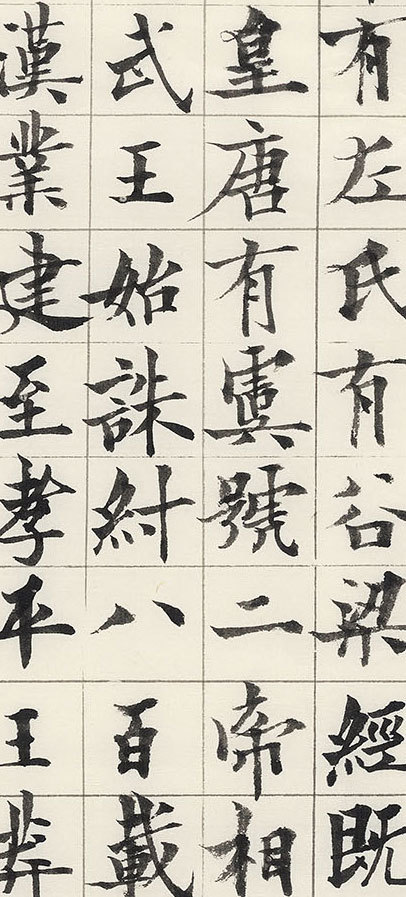 有左氏有谷梁經既
皇唐有虞號二帝相
武王始誅紂八百載
漢業建至孝平王莽